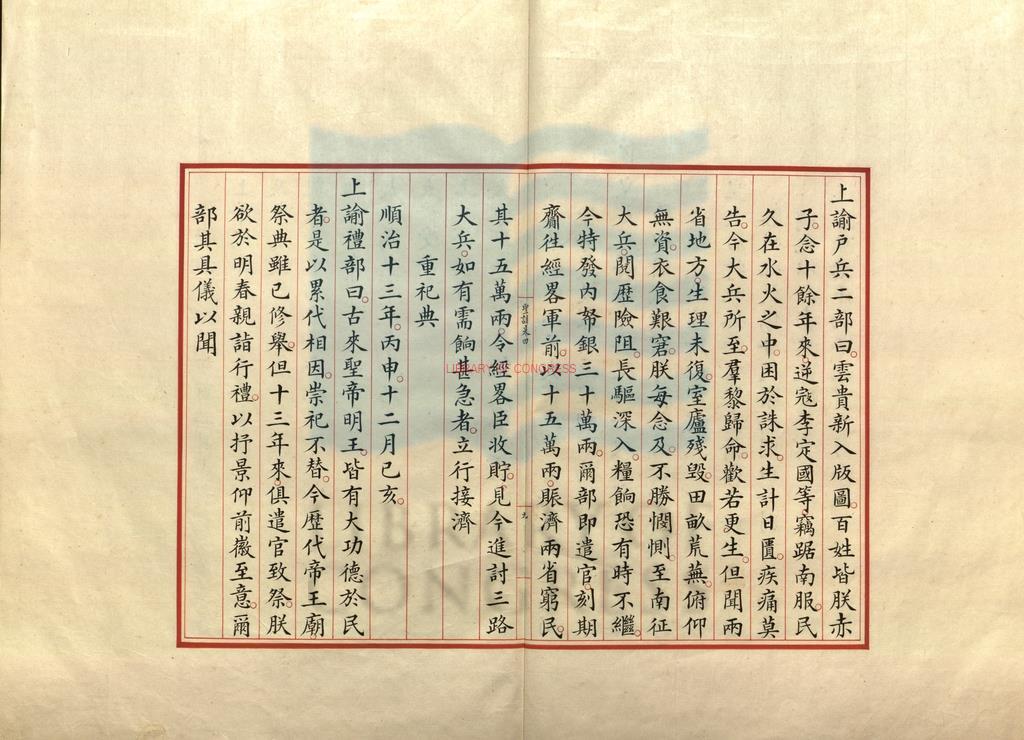 上諭戶兵二部曰。雲貴新入版圖。百姓皆朕赤
子。念十餘年來。逆寇李定國等。竊踞南服。民
久在水火之中。困於誅求。生計日匱。疾痛莫
告。今大兵所至。羣黎歸命。歡若更生。但聞兩
省地方。生理未復。室廬殘毀。田畝荒蕪。俯仰
無資。衣食艱窘。朕每念及。不勝憫惻。至南征
大兵。閱歷險阻。長驅深入。糧餉恐有時不繼。
今特發內帑銀三十萬兩。爾部即遣官。刻期
齎徃經畧軍前。以十五萬兩。賑濟兩省窮民。
其十五萬兩。令經畧臣收貯。見今進討三路
大兵。如有需餉甚急者。立行接濟
重祀典
順治十三年。丙申十二月己亥。
上諭禮部曰。古來聖帝明王。皆有大功德於民
者。是以累代相因。崇祀不替。今歷代帝王廟。
祭典雖已修舉。但十三年來。俱遣官致祭。朕
欲於明春親詣行禮。以抒景仰前徽至意。爾
部其具儀以聞
聖訓卷四
九
LIBRARY OF CONGRESS